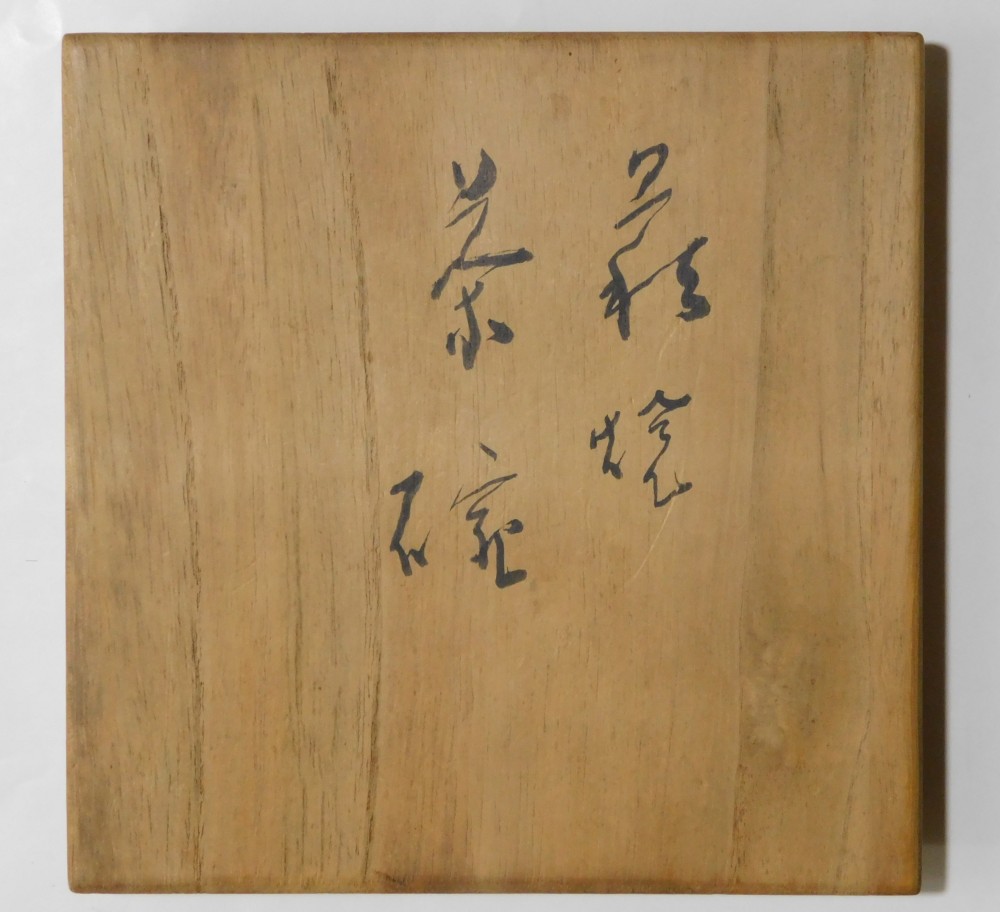 萩焼
茶碗